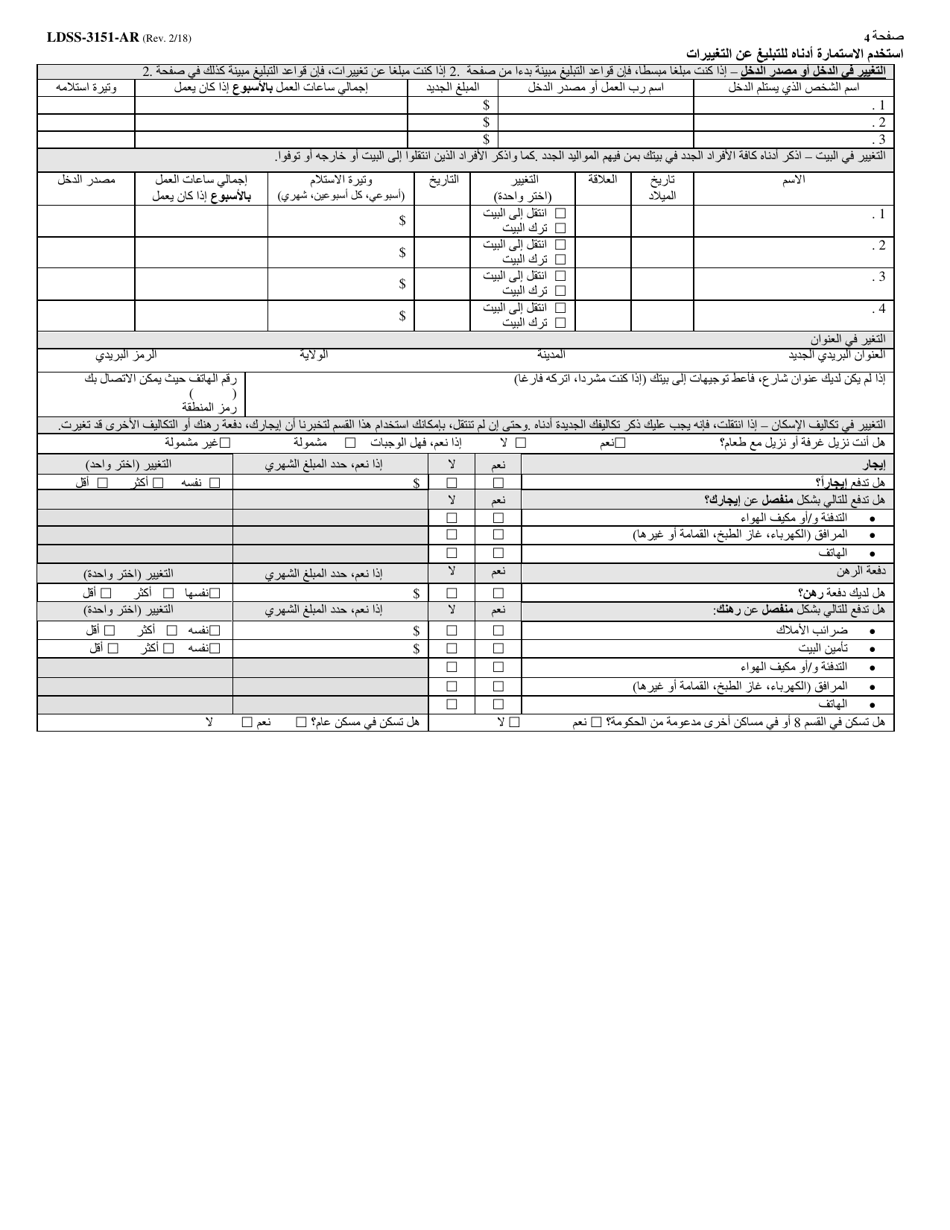 LDSS-3151-AR (Rev. 2/18) صفحة 4
استخدم الاستمارة أدناه للتبليغ عن التغييرات
التغيير في الدخل أو مصدر الدخل – إذا كنت مبلغا مبسطا، فإن قواعد التبليغ مبينة بدءا من صفحة 2. إذا كنت مبلغا عن تغييرات، فإن قواعد التبليغ مبينة كذلك في صفحة 2.
اسم الشخص الذي يستلم الدخل اسم رب العمل أو مصدر الدخل المبلغ الجديد إجمالي ساعات العمل بالأسبوع إذا كان يعمل وتيرة استلامه
1 . $
2 . $
3 . $
التغيير في البيت – اذكر أدناه كافة الأفراد الجدد في بيتك بمن فيهم المواليد الجدد .كما واذكر الأفراد الذين انتقلوا إلى البيت أو خارجه أو توفوا.
الاسم تاريخ الميلاد العلاقة التغيير (اختر واحدة) التاريخ وتيرة الاستلام (أسبوعي، كل أسبوعين، شهري) إجمالي ساعات العمل بالأسبوع إذا كان يعمل مصدر الدخل
1 . ☐ انتقل إلى البيت $
☐ ترك البيت
2 . ☐ انتقل إلى البيت $
☐ ترك البيت
3 . ☐ انتقل إلى البيت $
☐ ترك البيت
4 . ☐ انتقل إلى البيت $
☐ ترك البيت
التغير في العنوان
العنوان البريدي الجديد المدينة الولاية الرمز البريدي
إذا لم يكن لديك عنوان شارع، فأعط توجيهات إلى بيتك (إذا كنت مشردا، اتركه فارغا) رقم الهاتف حيث يمكن الاتصال بك
( )
رمز المنطقة
التغيير في تكاليف الإسكان – إذا انتقلت، فإنه يجب عليك ذكر تكاليفك الجديدة أدناه .وحتى إن لم تنتقل، بإمكانك استخدام هذا القسم لتخبرنا أن إيجارك، دفعة رهنك أو التكاليف الأخرى قد تغيرت.
هل أنت نزيل غرفة أو نزيل مع طعام؟ ☐نعم ☐ لا إذا نعم، فهل الوجبات ☐ مشمولة ☐غير مشمولة
إيجار نعم لا إذا نعم، حدد المبلغ الشهري التغيير (اختر واحد)
هل تدفع إيجاراً؟ ☐ ☐ $ ☐ نفسه ☐ أكثر ☐ أقل
هل تدفع للتالي بشكل منفصل عن إيجارك؟ نعم لا
• التدفئة و/أو مكيف الهواء ☐ ☐
• المرافق (الكهرباء، غاز الطبخ، القمامة أو غيرها) ☐ ☐
• الهاتف ☐ ☐
دفعة الرهن نعم لا إذا نعم، حدد المبلغ الشهري التغيير (اختر واحدة)
هل لديك دفعة رهن؟ ☐ ☐ $ ☐نفسها ☐ أكثر ☐ أقل
هل تدفع للتالي بشكل منفصل عن رهنك: نعم لا إذا نعم، حدد المبلغ الشهري التغيير (اختر واحدة)
• ضرائب الأملاك ☐ ☐ $ ☐نفسه ☐ أكثر ☐ أقل
• تأمين البيت ☐ ☐ $ ☐نفسه ☐ أكثر ☐ أقل
• التدفئة و/أو مكيف الهواء ☐ ☐
• المرافق (الكهرباء، غاز الطبخ، القمامة أو غيرها) ☐ ☐
• الهاتف ☐ ☐
هل تسكن في القسم 8 أو في مساكن أخرى مدعومة من الحكومة؟ ☐ نعم ☐ لا هل تسكن في مسكن عام؟ ☐ نعم ☐ لا